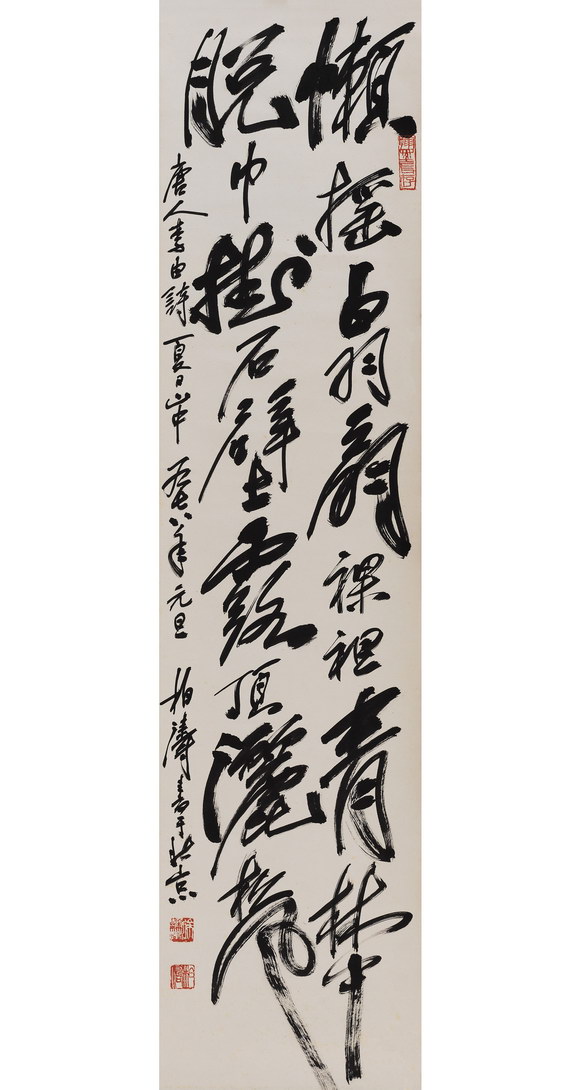 懶摇白羽扇裸袒青林中
脱巾掛石壁露頂灑松風
唐人李白詩夏日山中 一九七八年元旦 柏濤書于北京